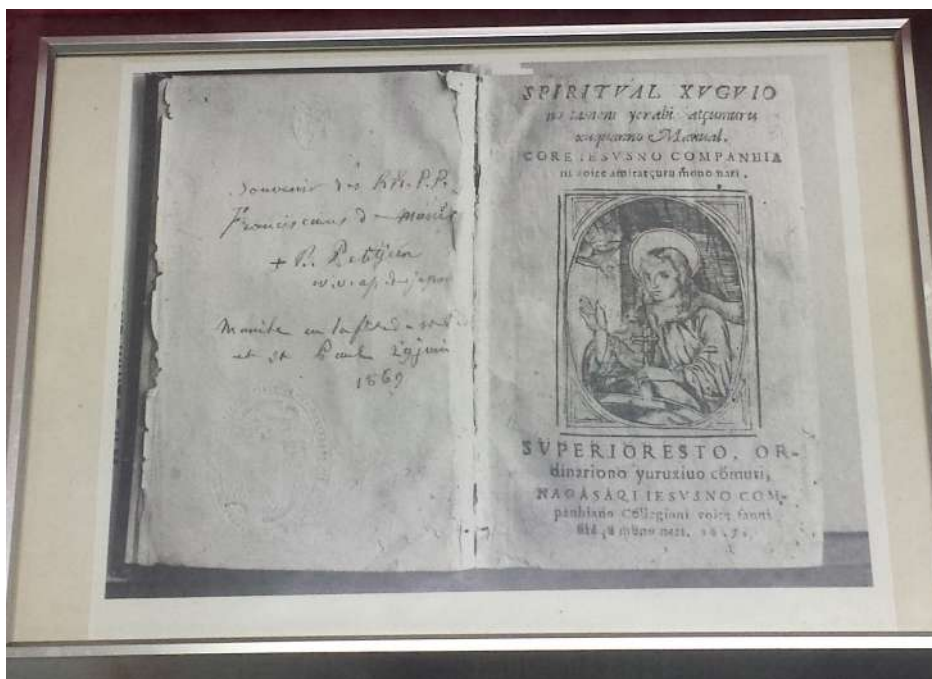 Souvenir des RR. P.P.
Franciscains de
+ B. Petitjean
v. ap. du japon
Manille en la
et St Paul 29 juin
1869
SPIRITVAL XVGVIO
no tameni yerabi atçumuru
xuguanno Manual.
CORE IESVSNO COMPANHIA
ni voite amitatçuru mono nari.
SVPERIORESTO, OR-
dinariono yuruxiuo cŏmuri,
NAGASAQI IESVSNO COM-
panhiano Collegioni voite fanni
mono nari.